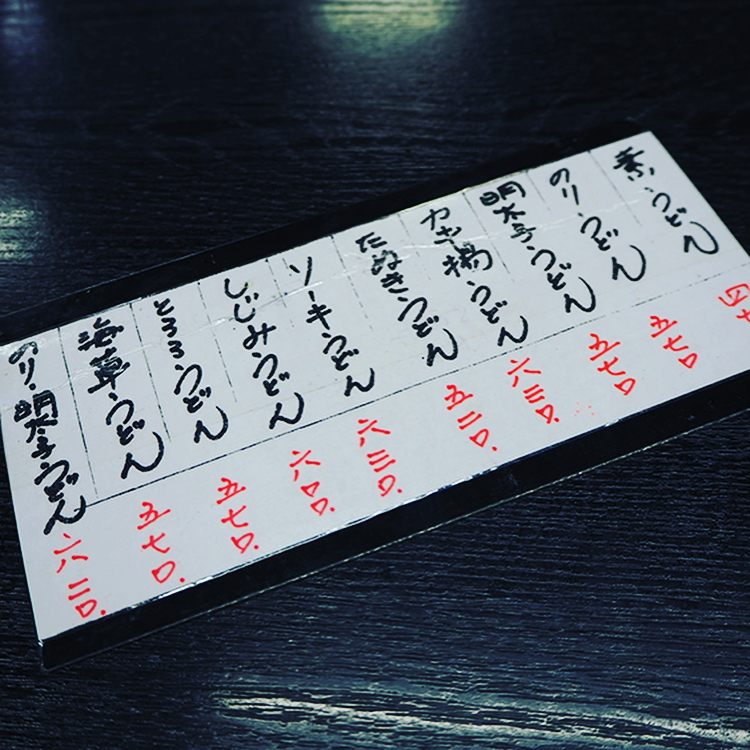 素・うどん 四七
のり・うどん 五七〇.
明太子・うどん 五七〇.
カキ揚・うどん 六三〇.
たぬき・うどん 五二〇.
ソーキ・うどん 六三〇.
しじみ・うどん 六〇〇.
とろろ・うどん 五七〇.
海草・うどん 五七〇.
のり・明太子・うどん 六二〇.